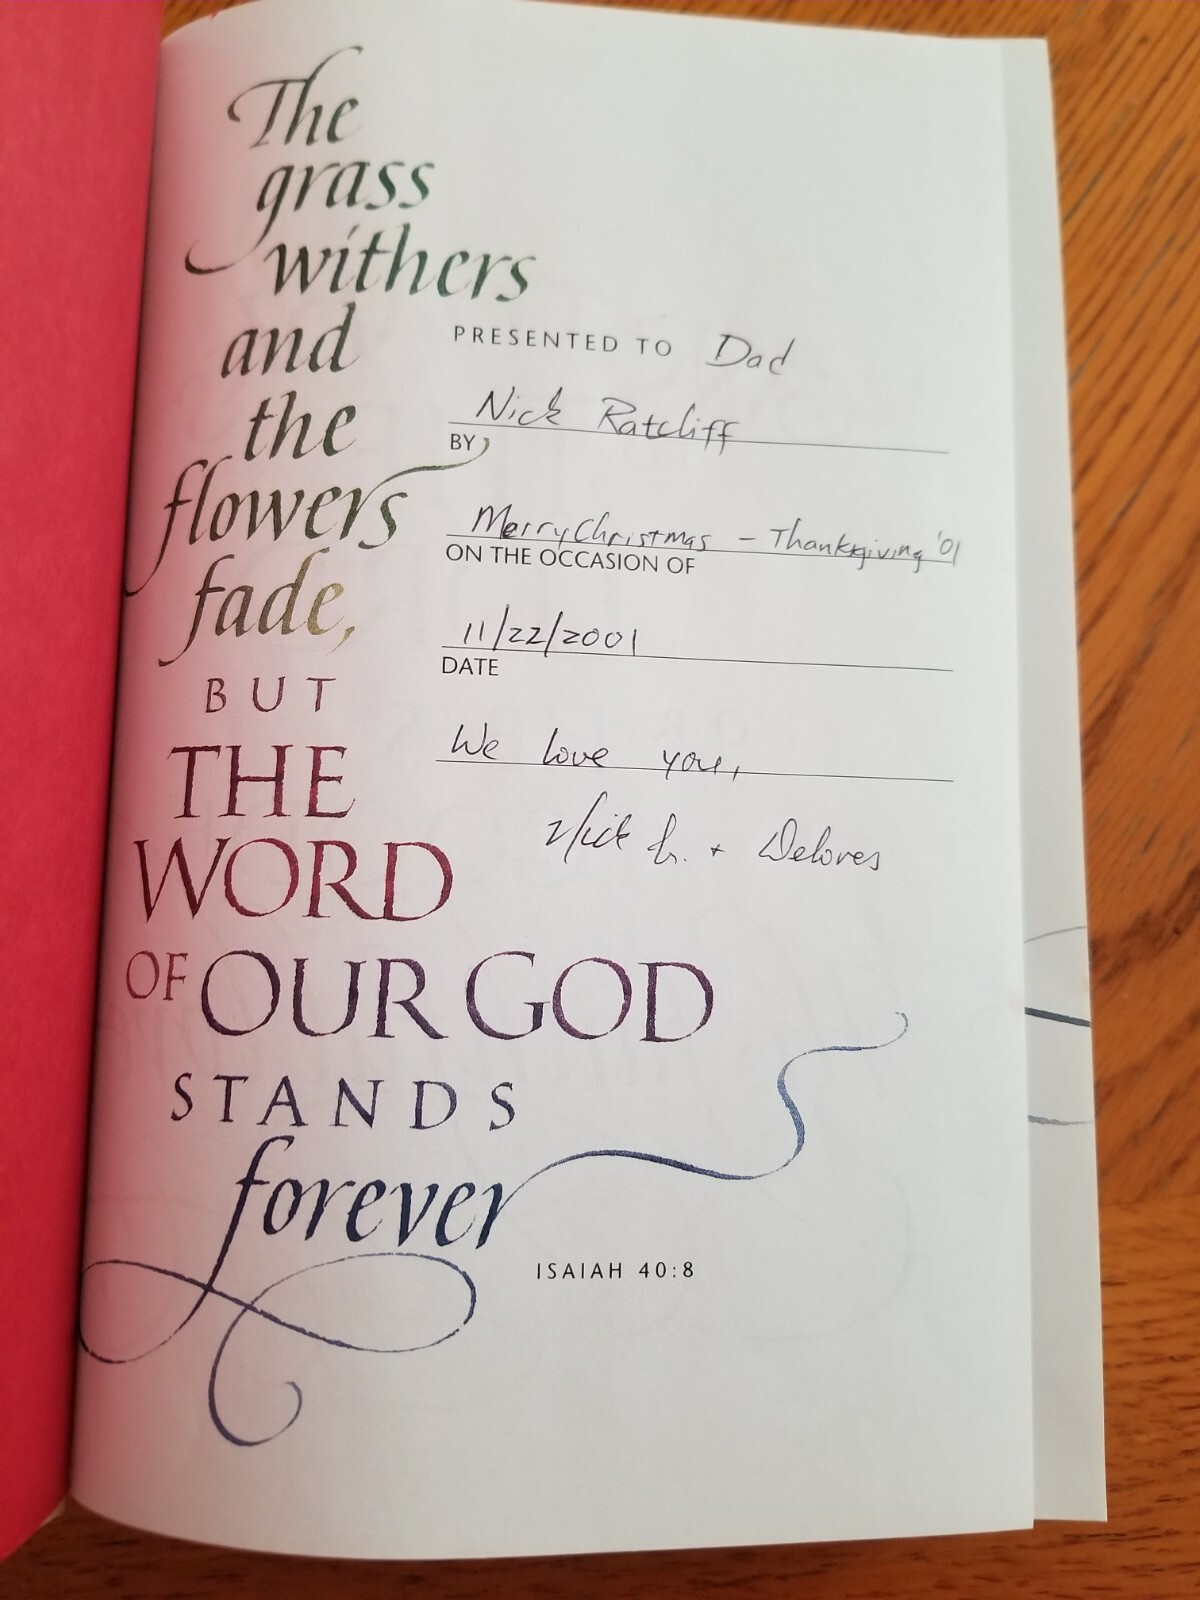 The
grass
withers
and
the
flowers
fade,
BUT
THE
WORD
OF OUR GOD
STANDS
forever
ISAIAH 40:8
PRESENTED TO Dad
Nick Ratcliff
BY
Merry Christmas - Thanksgiving '01
ON THE OCCASION OF
11/22/2001
DATE
We love you,
Nick Jr. + Delores